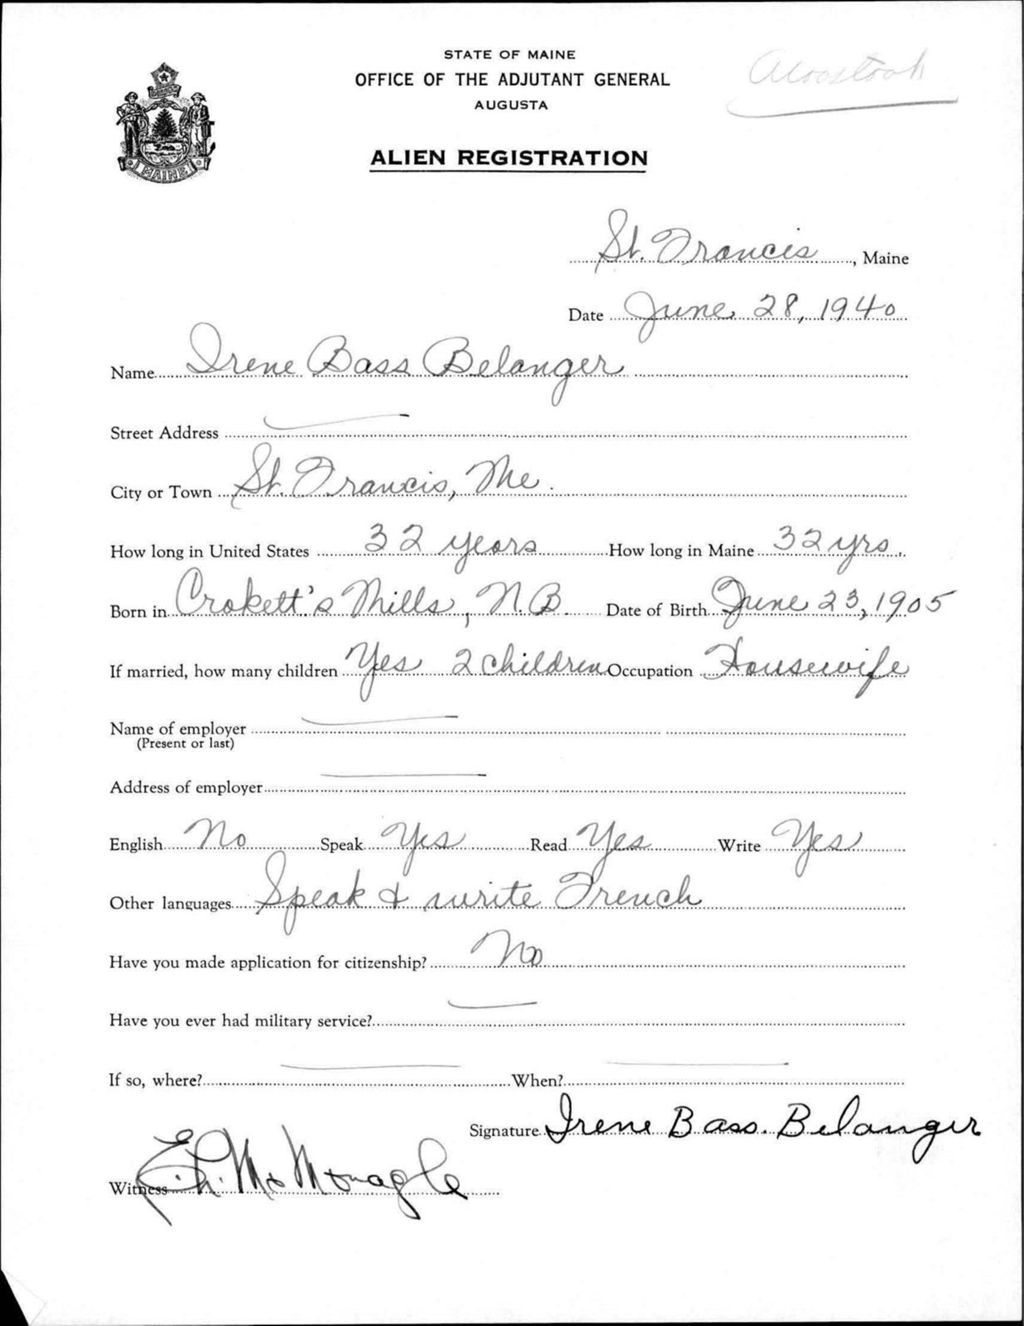 STATE OF MAINE
OFFICE OF THE ADJUTANT GENERAL
AUGUSTA
Aroostook
ALIEN REGISTRATION
MAINE
St. Francis, Maine
Date June 28, 1940
Name Irene Bass Belanger
Street Address —
City or Town St. Francis, Me.
How long in United States 32 years How long in Maine 32 yrs.
Born in Crokett's Mills, NB. Date of Birth June 23, 1905
If married, how many children Yes 2 children Occupation Housewife
Name of employer —
(Present or last)
Address of employer —
English No Speak Yes Read Yes Write Yes
Other languages Speak & write French
Have you made application for citizenship? No
Have you ever had military service? —
If so, where? — When? —
Signature Irene Bass. Belanger
Witness E. L. McMonagle